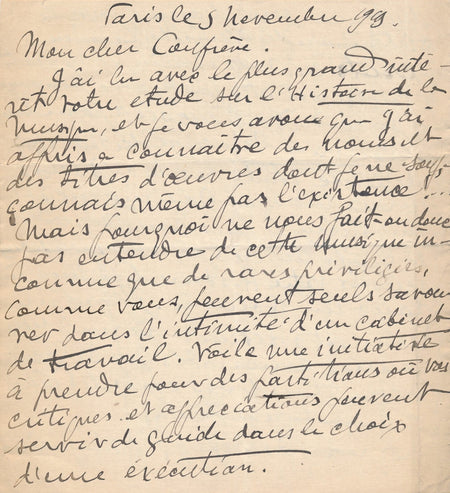 Paris le 5 Novembre
Mon cher Confrère.
J'ai lu avec le plus grand inté-
rêt votre étude sur l'Histoire de la
Musique, et je vous avoue que j'ai
appris a connaître des noms et
des titres d'œuvres dont je ne soup-
connais même pas l'existence...
Mais pourquoi ne nous fait-on donc
pas entendre de cette musique in-
connue que de rares priviligiés,
comme vous, peuvent seuls savou
rer dans l'intimité d'un cabinet
de travail. Voila une initiative
à prendre pour des partitions où vos
critiques et appreciations peuvent
servir de guide dans le choix
d'une exécution.